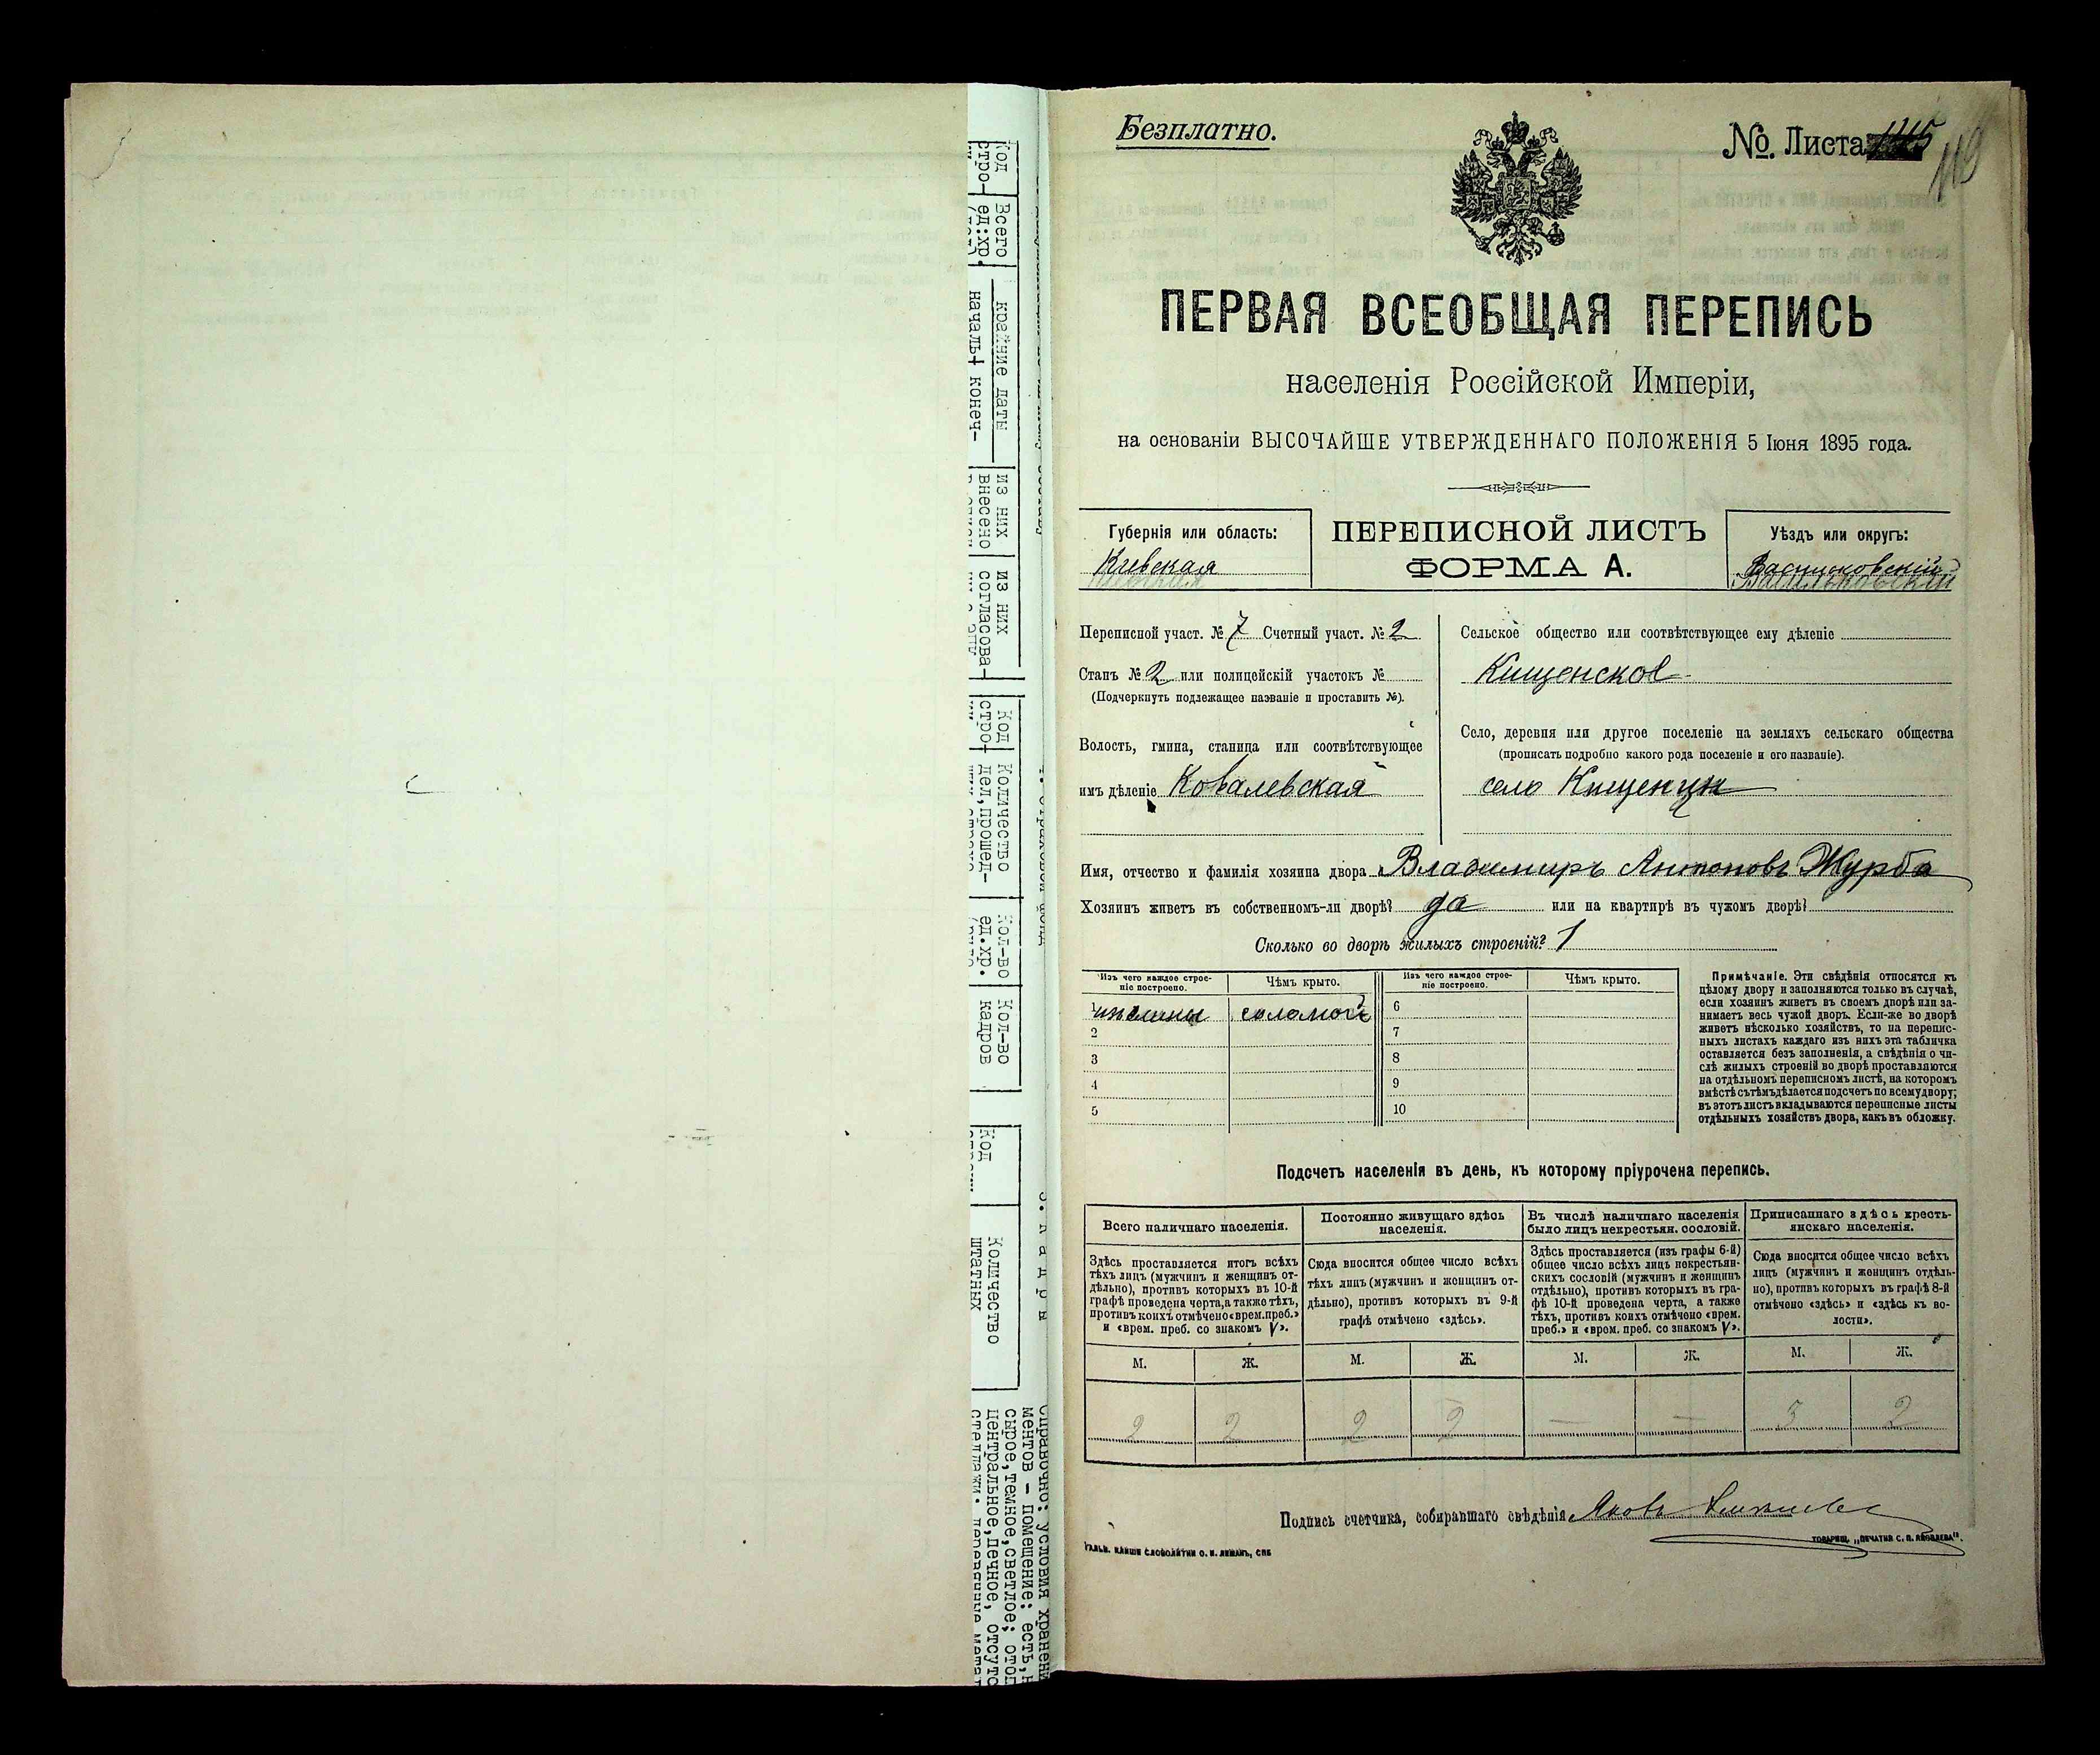 Безплатно.
№ Листа
ПЕРВАЯ ВСЕОБЩАЯ ПЕРЕПИСЬ
населенія Россійской Имперіи,
на основаніи ВЫСОЧАЙШЕ УТВЕРЖДЕННАГО ПОЛОЖЕНІЯ 5 Іюня 1895 года.
Губернія или область:
Кіевская
ПЕРЕПИСНОЙ ЛИСТЪ
ФОРМА А.
Уѣздъ или округъ:
Васильковскій
Переписной участ. № 7 Счетный участ. № 2
Станъ № 2 или полицейскій участокъ №
(Подчеркнуть подлежащее названіе и проставить №).
Волость, гмина, станица или соотвѣтствующее
имъ дѣленіе Ковалевская
Сельское общество или соотвѣтствующее ему дѣленіе
Кищенское
Село, деревня или другое поселеніе на земляхъ сельскаго общества
(прописать подробно какого рода поселеніе и его названіе).
село Кищенцы
Имя, отчество и фамилія хозяина двора Владимиръ Антоновъ Журба
Хозяинъ живетъ въ собственномъ-ли дворѣ? да или на квартирѣ въ чужомъ дворѣ?
Сколько во дворѣ жилыхъ строеній? 1
Изъ чего каждое строе-
ніе построено.
Чѣмъ крыто.
Изъ чего каждое строе-
ніе построено.
Чѣмъ крыто.
1 изъ глины соломой
2
3
4
5
6
7
8
9
10
Примѣчаніе. Эти свѣдѣнія относятся къ
цѣлому двору и заполняются только въ случаѣ,
если хозяинъ живетъ въ своемъ дворѣ или за-
нимаетъ весь чужой дворъ. Если-же во дворѣ
живетъ нѣсколько хозяйствъ, то на перепис-
ныхъ листахъ каждаго изъ нихъ эта табличка
оставляется безъ заполненія, а свѣдѣнія о чи-
слѣ жилыхъ строеній во дворѣ проставляются
на отдѣльномъ переписномъ листѣ, на которомъ
вмѣстѣ съ тѣмъ дѣлается подсчетъ по всему двору;
въ этотъ листъ вкладываются переписные листы
отдѣльныхъ хозяйствъ двора, какъ въ обложку.
Подсчетъ населенія въ день, къ которому пріурочена перепись.
Всего наличнаго населенія.
Здѣсь проставляется итогъ всѣхъ
тѣхъ лицъ (мужчинъ и женщинъ от-
дѣльно), противъ которыхъ въ 10-й
графѣ проведена черта, а также тѣхъ,
противъ коихъ отмѣчено «врем. преб.»
и «врем. преб. со знакомъ V».
М. Ж.
2 2
Постоянно живущаго здѣсь
населенія.
Сюда вносится общее число всѣхъ
тѣхъ лицъ (мужчинъ и женщинъ от-
дѣльно), противъ которыхъ въ 9-й
графѣ отмѣчено «здѣсь».
М. Ж.
2 2
Въ числѣ наличнаго населенія
было лицъ некрестьян. сословій.
Здѣсь проставляется (изъ графы 6-й)
общее число всѣхъ лицъ некрестьян-
скихъ сословій (мужчинъ и женщинъ
отдѣльно), противъ которыхъ въ гра-
фѣ 10-й проведена черта, а также
тѣхъ, противъ коихъ отмѣчено «врем.
преб.» и «врем. преб. со знакомъ V».
М. Ж.
— —
Приписаннаго здѣсь кресть-
янскаго населенія.
Сюда вносится общее число всѣхъ
лицъ (мужчинъ и женщинъ отдѣль-
но), противъ которыхъ въ графѣ 8-й
отмѣчено «здѣсь» и «здѣсь къ во-
лости».
М. Ж.
3 2
Подпись счетчика, собиравшаго свѣдѣнія Яковъ
ТОВАРИЩ. „ПЕЧАТНЯ С. П. ЯКОВЛЕВА".
Код
стро-
Всего
ед.хр.
крайние даты
началь- конеч-
из них
внесено
из них
согласова-
Код
стро-
Количество
дел, прошед-
Кол-во
ед.хр.
Кол-во
кадров
Код
Количество
штатных
Справочно: условия хранени
ментов - помещение: есть, н
сырое, темное, светлое; отоп
центральное, печное, отсутс